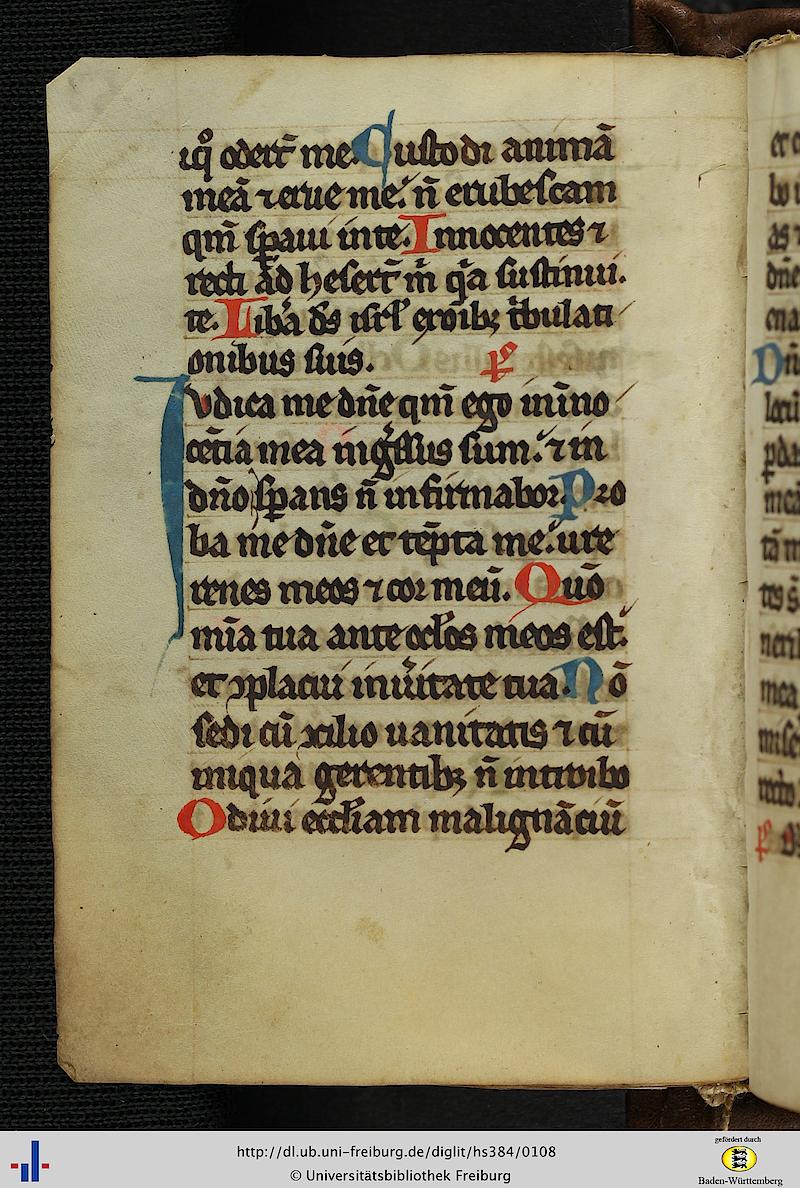 iqͦ oder̄t me. Custodi animā
meā ⁊ erue me. n̄ erubescam
qm̄ sꝑaui in te. Innocentes ⁊
recti adheser̄t m̄ q̇a sustinui
te. Liba ds̄ isrł ex oĩbꝫ t̃bulati
onibus suis. pͦ
Iudica me dn̄e qm̄ ego in ĩno
cētia mea ingͤssus sum. ⁊ in
dn̄o sꝑans n̄ infirmabor. Pro
ba me dn̄e et tēpta me. ure
renes meos ⁊ cor meū. Quō
mīa tua ante oclōs meos est.
et ꝯplacui in uĩtate tua. Nō
sedi cū ꝯcilio uanitatis ⁊ cū
iniqua gerentibꝫ n̄ introibo
Odiui eccłiam malignāciū
dn̄e
mea
http://dl.ub.uni-freiburg.de/diglit/hs384/0108
© Universitätsbibliothek Freiburg
gefördert durch
Baden-Württemberg